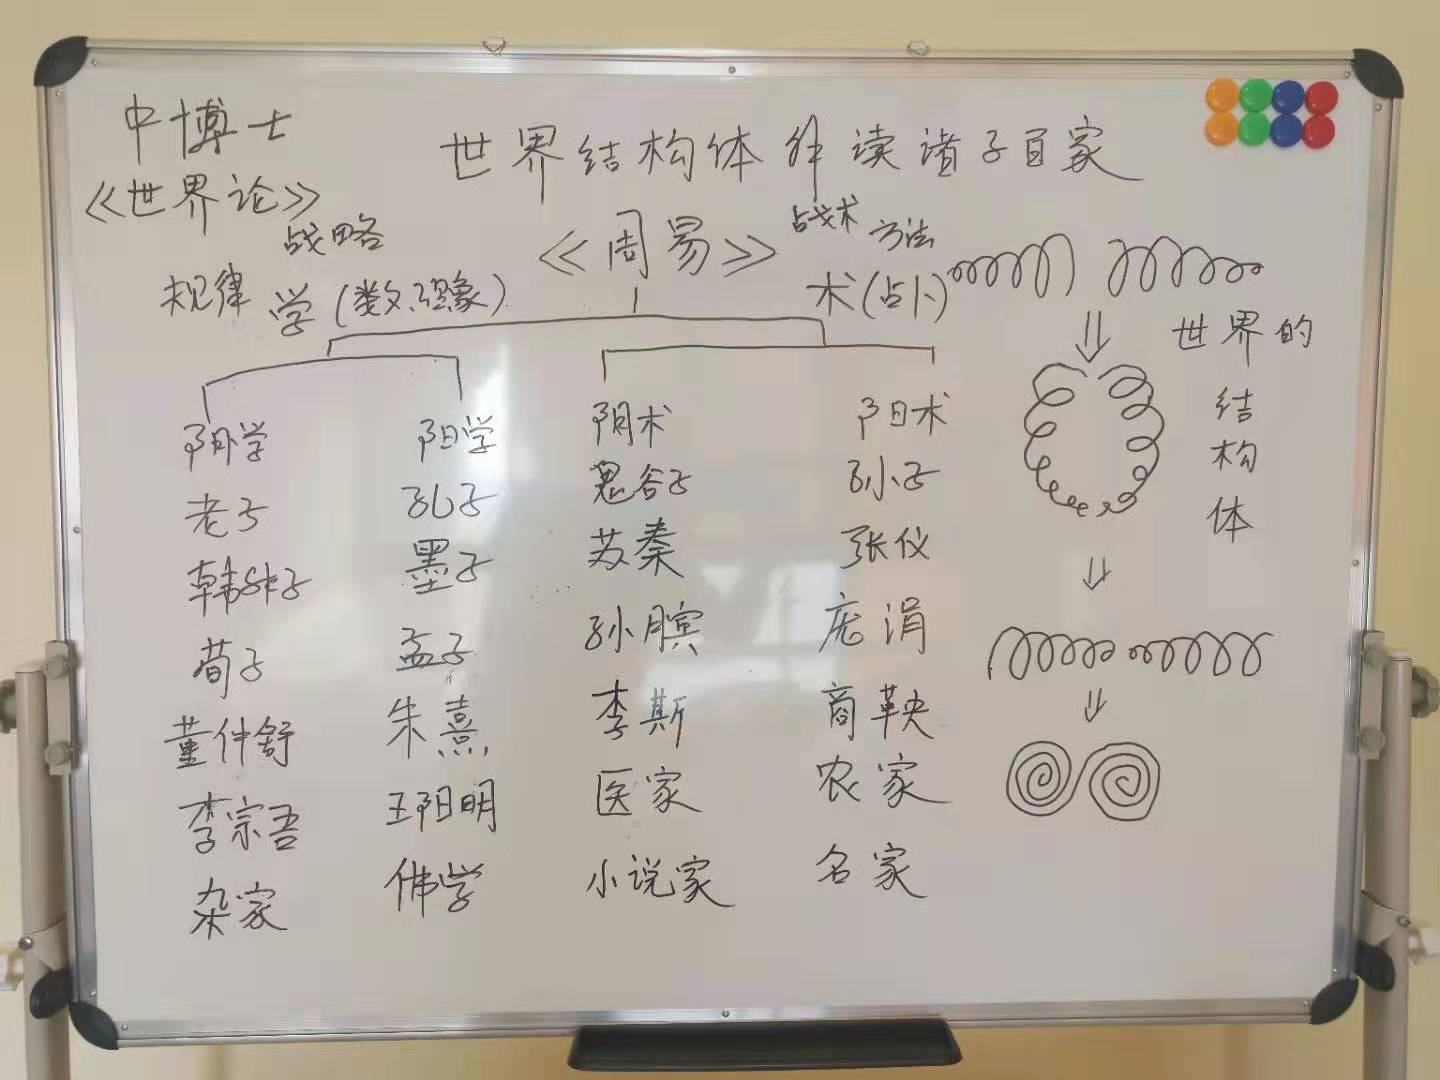 中博士
《世界论》
世界结构体解读诸子百家
战略
《周易》
战术 方法
规律 学(数、理、象)
术(占卜)
世界的
结
构
体
阴学 阳学 阴术 阳术
老子 孔子 鬼谷子 孙子
韩非子 墨子 苏秦 张仪
荀子 孟子 孙膑 庞涓
董仲舒 朱熹 李斯 商鞅
李宗吾 王阳明 医家 农家
杂家 佛学 小说家 名家